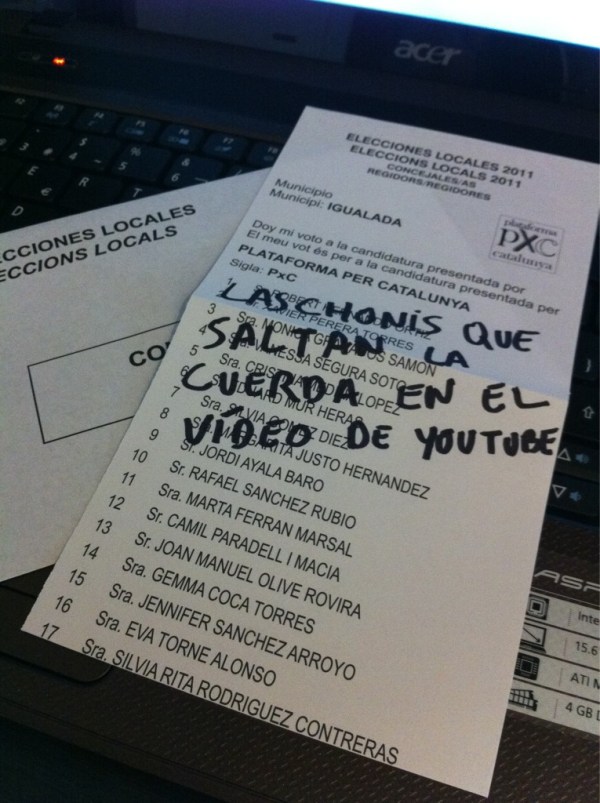 acer
ELECCIONES LOCALES 2011
ELECCIONS LOCALS 2011
CONCEJALES/AS
REGIDORS/REGIDORES
Municipio
Municipi: IGUALADA
plataforma
PXC
catalunya
Doy mi voto a la candidatura presentada por
El meu vot és per a la candidatura presentada per
PLATAFORMA PER CATALUNYA
Sigla: PxC
LAS CHONIS QUE
SALTAN LA
CUERDA EN EL
VÍDEO DE YOUTUBE
PERERA TORRES
3 Sra. SAMON
4 SEGURA SOTO
5 Sra. LOPEZ
6 MUR HERAS
7 Sra. DIEZ
8 JUSTO HERNANDEZ
9 Sr. JORDI AYALA BARO
10 Sr. RAFAEL SANCHEZ RUBIO
11 Sra. MARTA FERRAN MARSAL
12 Sr. CAMIL PARADELL I MACIA
13 Sr. JOAN MANUEL OLIVE ROVIRA
14 Sra. GEMMA COCA TORRES
15 Sra. JENNIFER SANCHEZ ARROYO
16 Sra. EVA TORNE ALONSO
17 Sra. SILVIA RITA RODRIGUEZ CONTRERAS
CCIONES LOCALES
ECCIONS LOCALS
CO
ASP
Inte
15.6
ATI M
4 GB